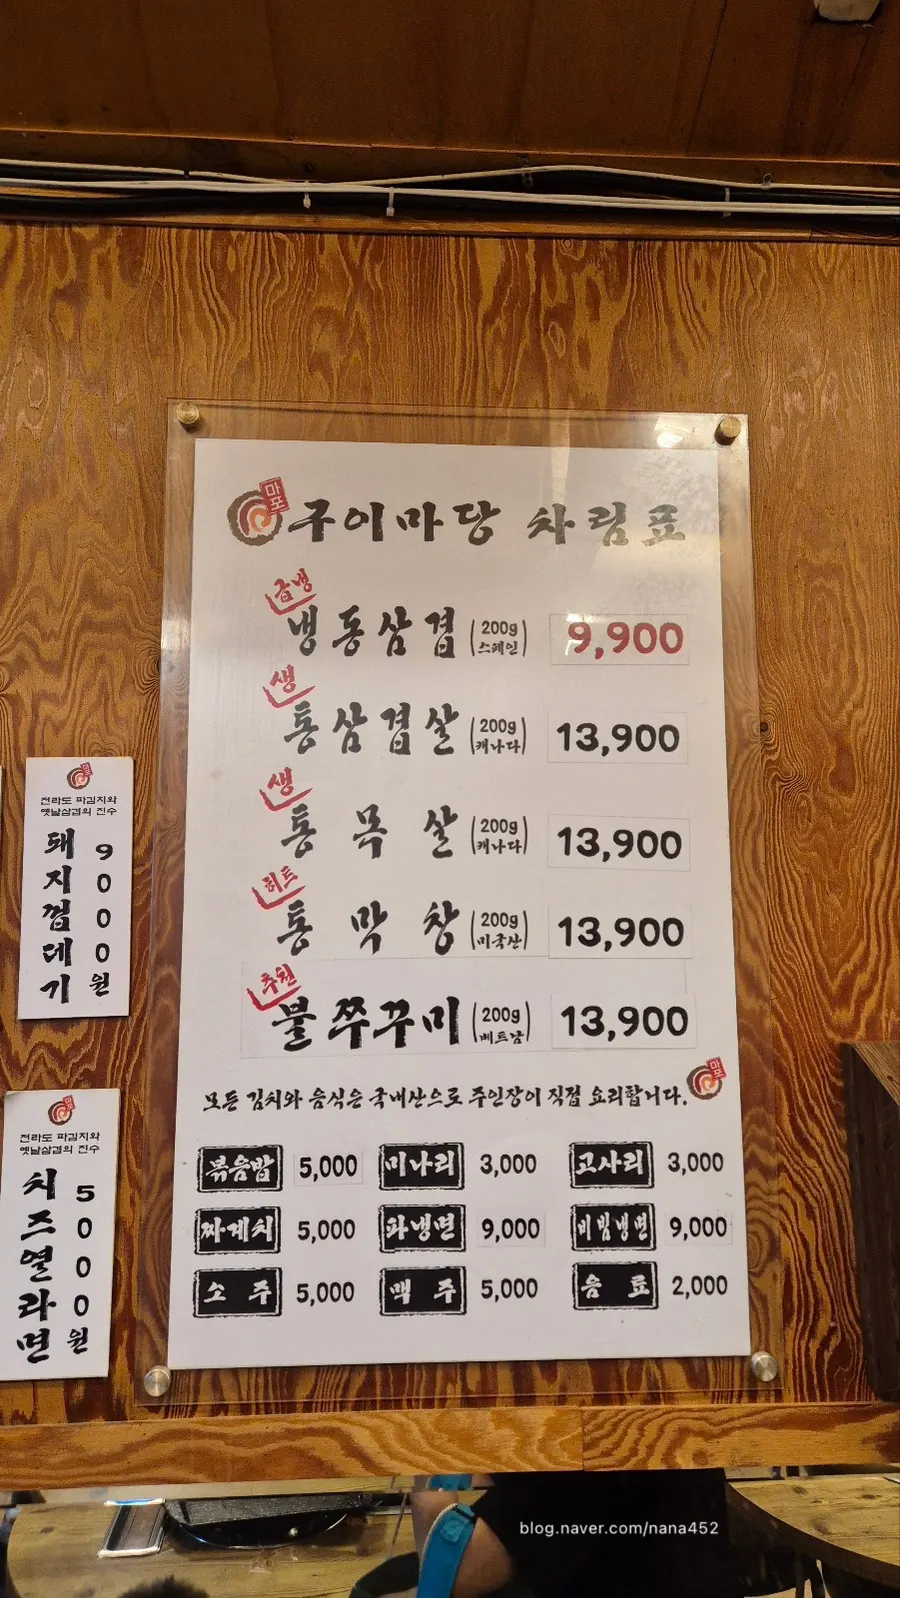 마포
구이마당 차림표
급냉
냉동삼겹 (200g 스페인) 9,900
생
통삼겹살 (200g 캐나다) 13,900
생
통목살 (200g 캐나다) 13,900
히트
통막창 (200g 미국산) 13,900
추천
불쭈꾸미 (200g 베트남) 13,900
모든 김치와 음식은 국내산으로 주인장이 직접 요리합니다.
마포
볶음밥 5,000 미나리 3,000 고사리 3,000
짜계치 5,000 파냉면 9,000 비빔냉면 9,000
소주 5,000 맥주 5,000 음료 2,000
마포
전라도 파김치와
옛날삼겹의 진수
돼지껍데기 9000원
마포
전라도 파김치와
옛날삼겹의 진수
치즈열라면 5000원
blog.naver.com/nana452